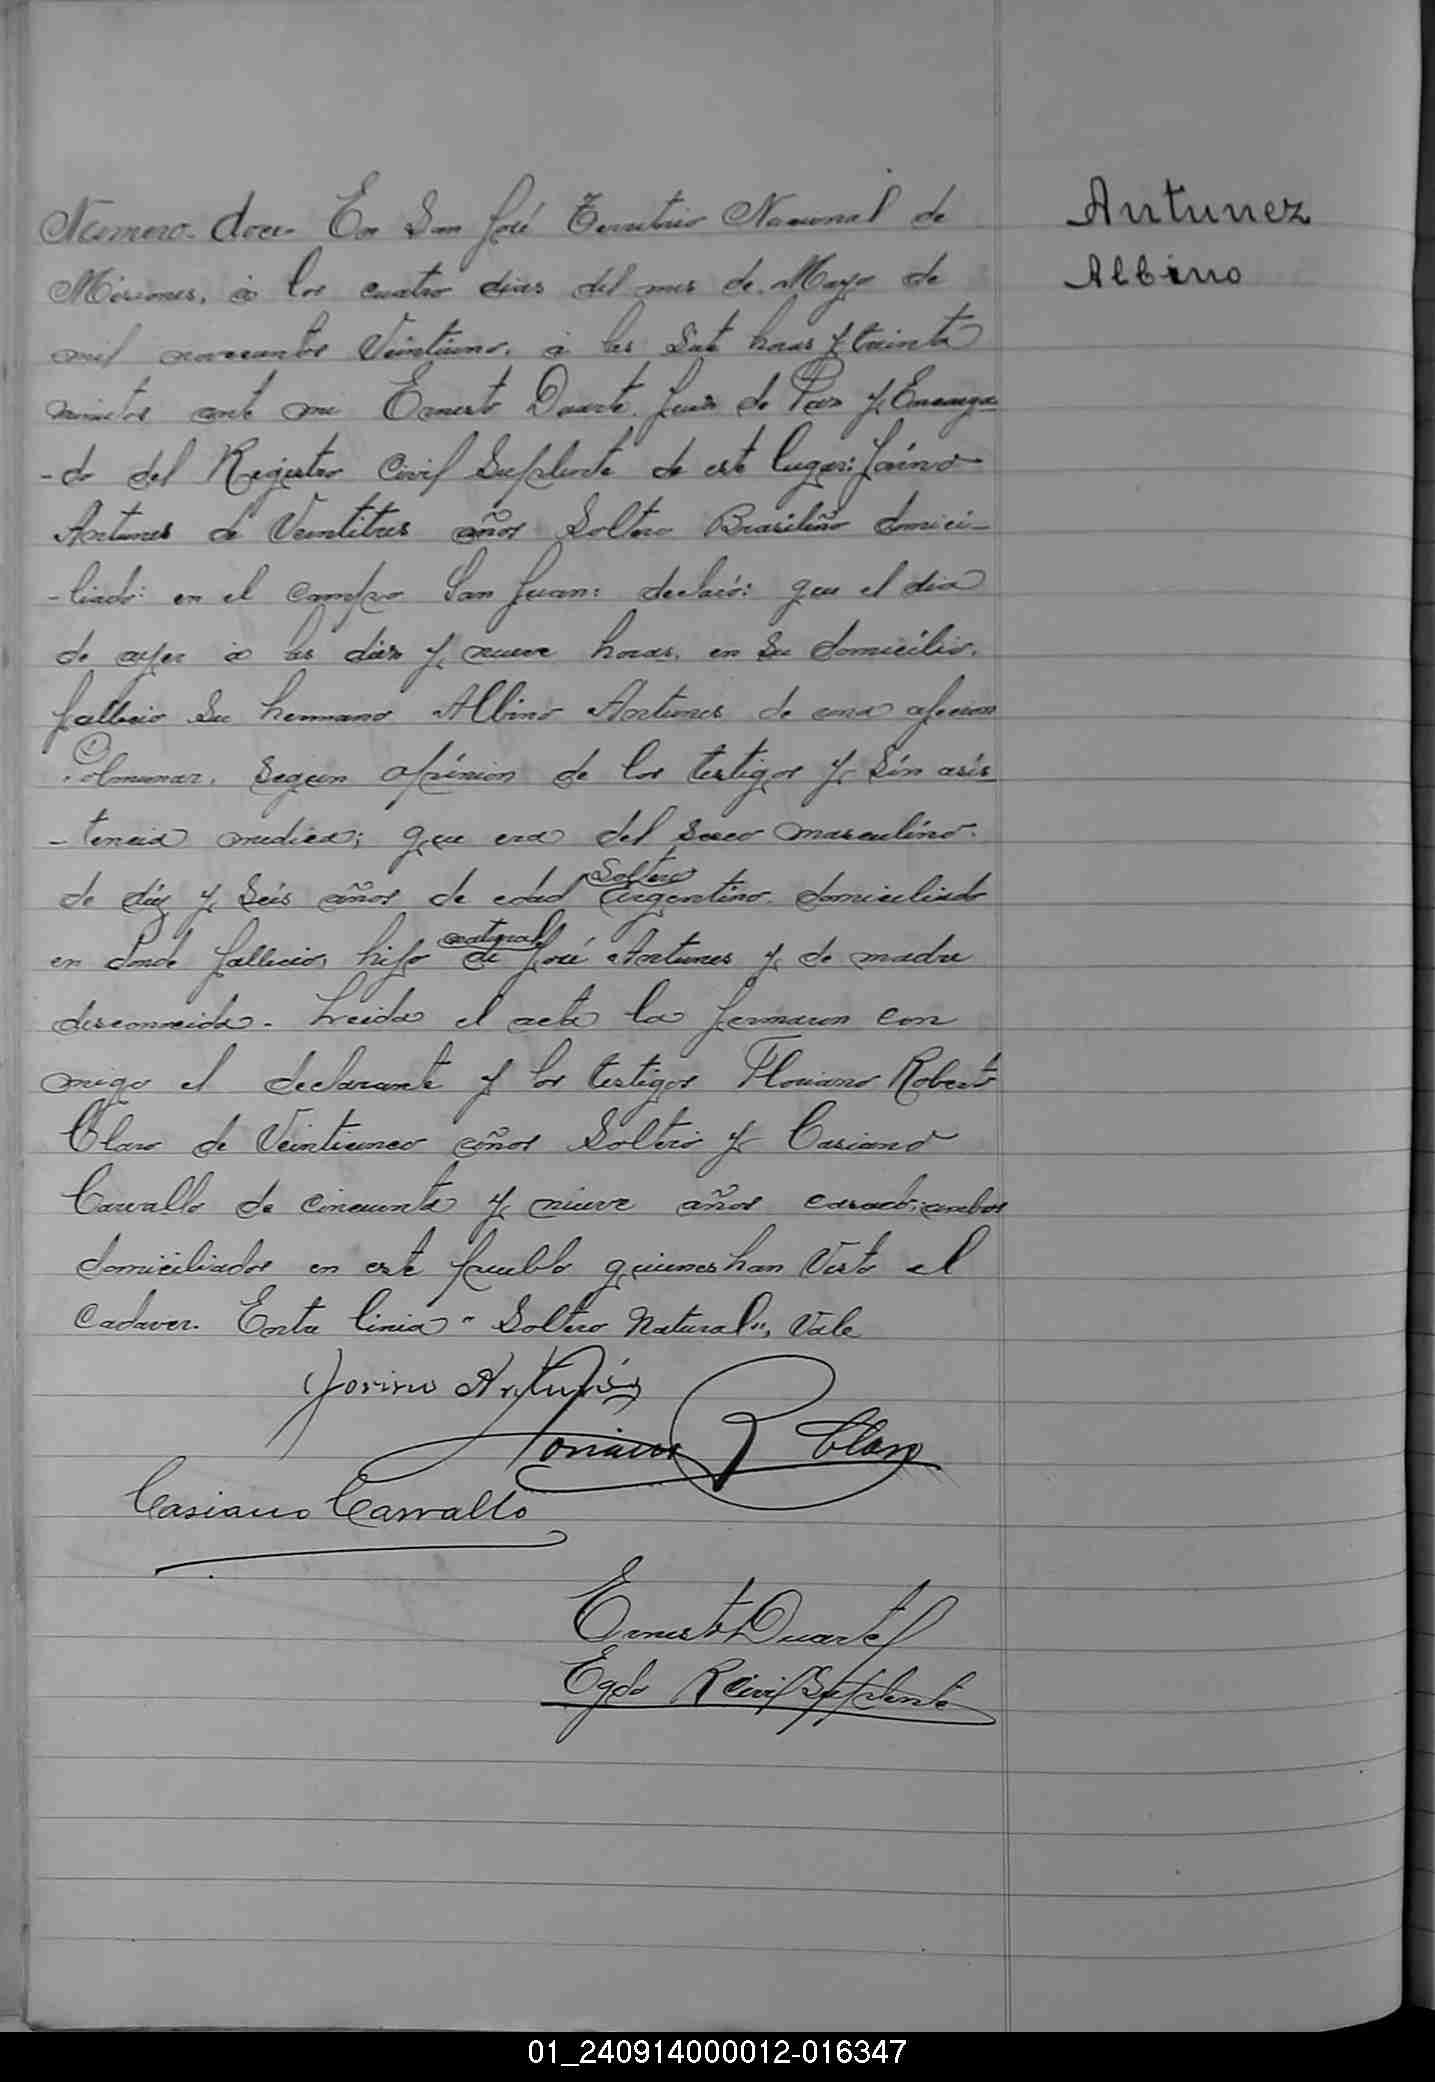 Antunez
Albino
Numero doce. En San José Territorio Nacional de
Misiones, á los cuatro dias del mes de Mayo de
mil novecientos Veintiuno, á las Siete horas y treinta
minutos ante mi Ernesto Duarte Juez de Paz y Encarga
-do del Registro Civil Suplente de este lugar: Jovino
Antunes de Veintitres años Soltero Brasileño domici-
-liado: en el campo San Juan: declaró: que el dia
de ayer á las diez y nueve horas, en su domicilio,
fallecio su hermano Albino Antunes de una afeccion
Polmunar, segun opinion de los testigos y sin asis
-tencia medica; que era del sexo masculino.
de diez y seis años de edad Soltero argentino domiciliado
en donde fallecio, hijo natural de José Antunes y de madre
desconocida. Leida el acta la firmaron con
migo el declarante y los testigos Floriano Roberto
Claro de Veinticinco años Soltero y Casiano
Carvallo de cincuenta y nueve años casado; ambos
domiciliados en este pueblo quienes han Visto el
Cadaver. Entre linia "Soltero Natural", Vale
Jovino Antunes
Floriano R Claro
Casiano Carvallo
Ernesto Duarte
Egdo R Civil Suplente
01_240914000012-016347